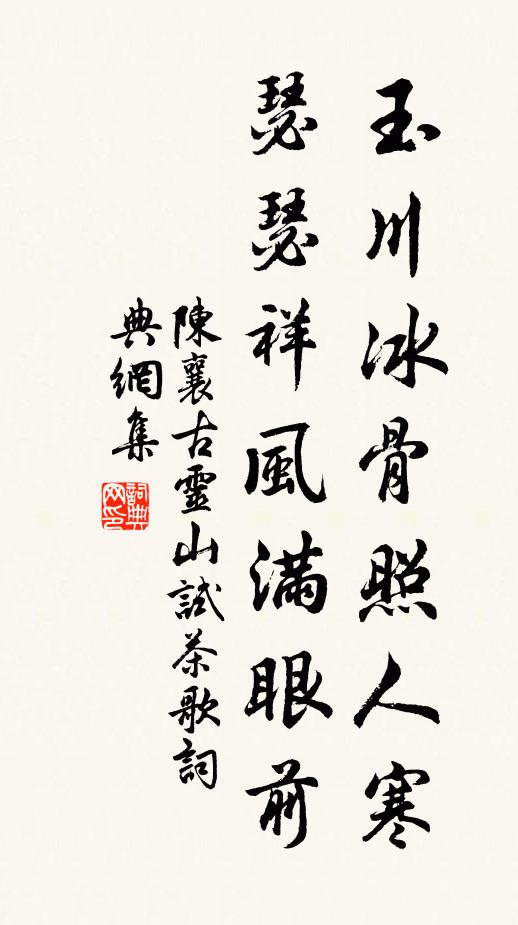 玉川冰骨照人寒
瑟瑟祥風滿眼前
陳襄古靈山試茶歌詞
典網集
詞典
网印